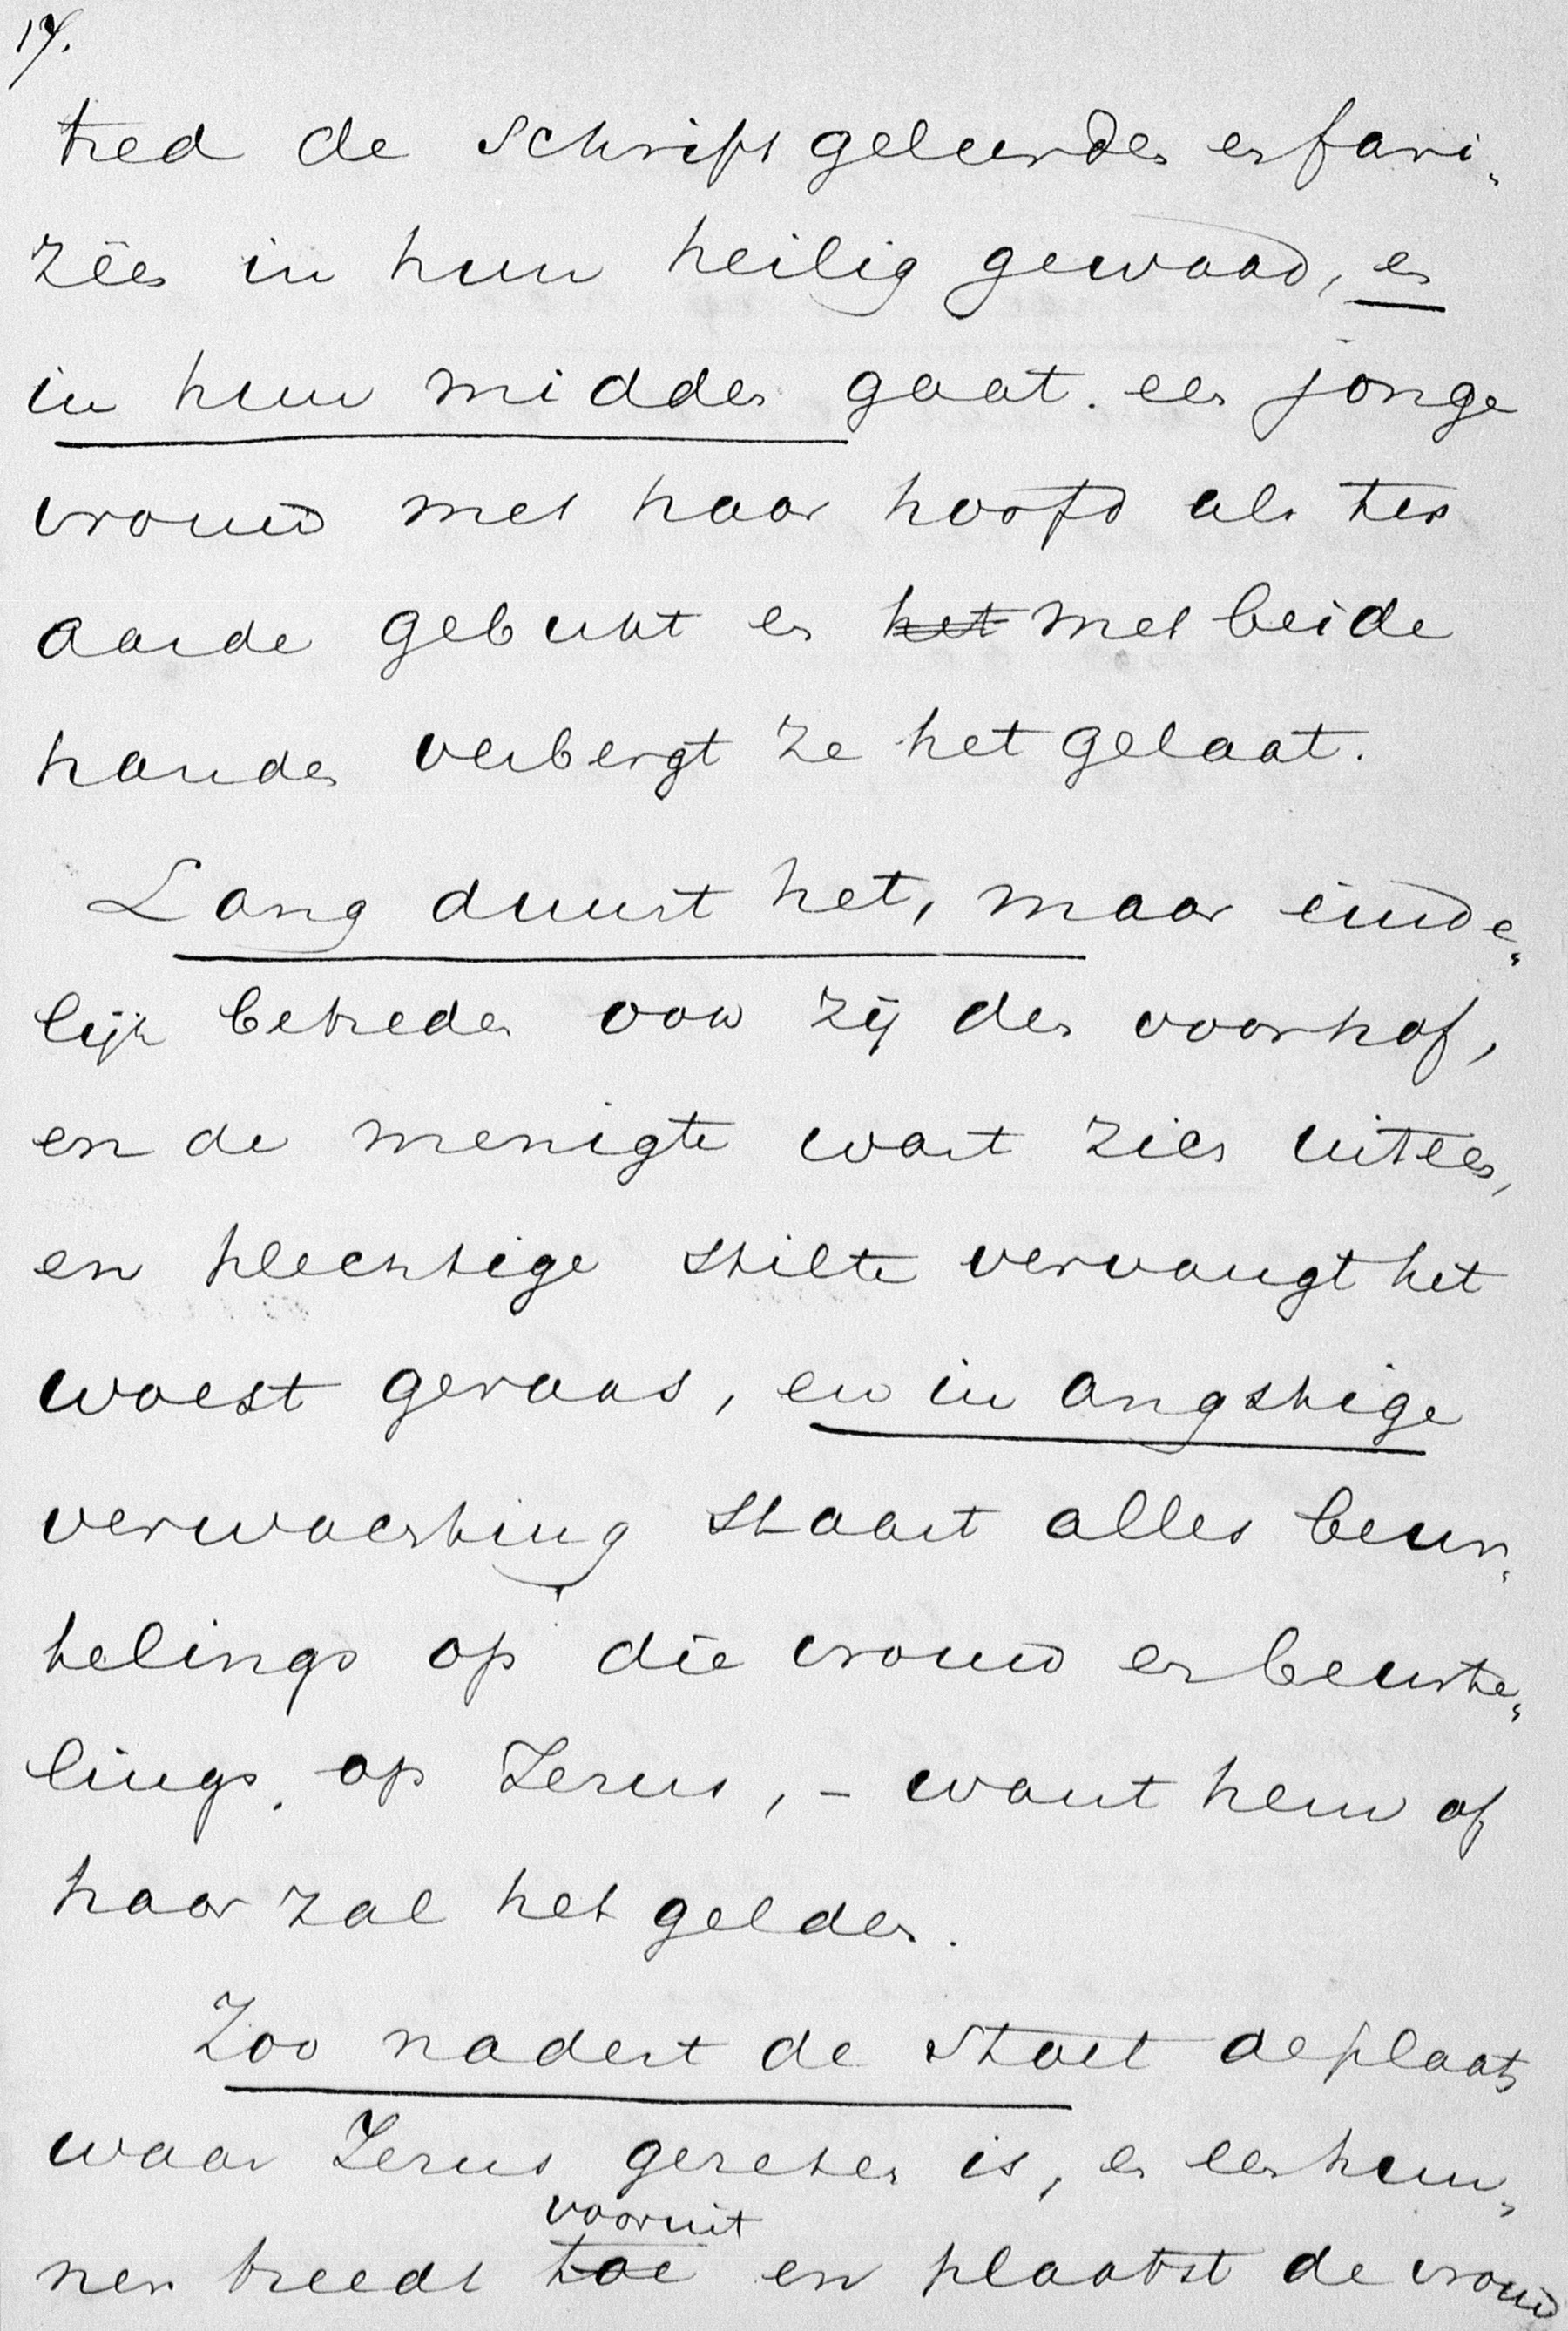 17.
tred de schriftgeleerden en fari„
zëen in hun heilig gewaad, en
in hun midden gaat. een jonge
vrouw met haar hoofd als ter
aarde gebukt en het met beide
handen verbergt ze het gelaat.
Lang duurt het, maar einde„
lijk betreden ook zij den voorhof,
en de menigte wart zich uiteen,
en plechtige stilte vervangt het
woest geraas, en in angstige
verwachting staart alles beur„
telings op die vrouw en beurte„
lings. op Jezus, – want hem of
haar zal het gelden.
Zoo nadert de stoet de plaats
waar Jezus gezeten is, en een hun„
vooruit
ner treedt toe en plaatst de vrouw